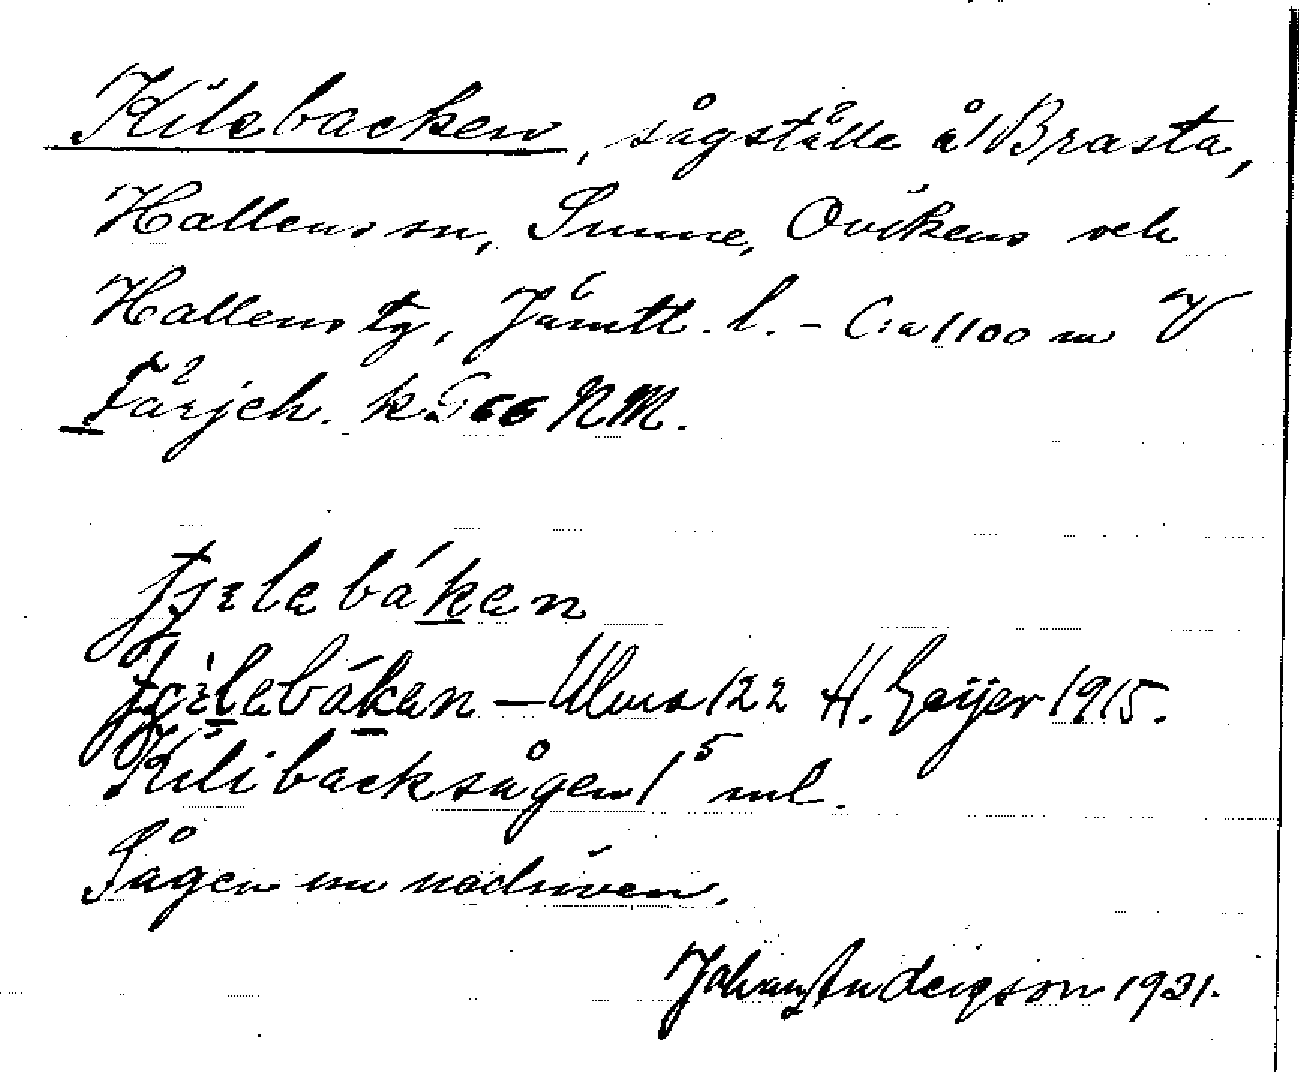 Kilebacken, sågställe å Brasta,
Hallens sn, Sunne, Ovikens och
Hallens tg, Jämtl. l. – C:a 1100 m V
Färjeh. k 566 NM.
báken
báken – Ulma 122 H. Geijer 1915.
Kilibacksågen 1⁵ ml.
Sågen nu nedriven.
Johan Anderson 1921.